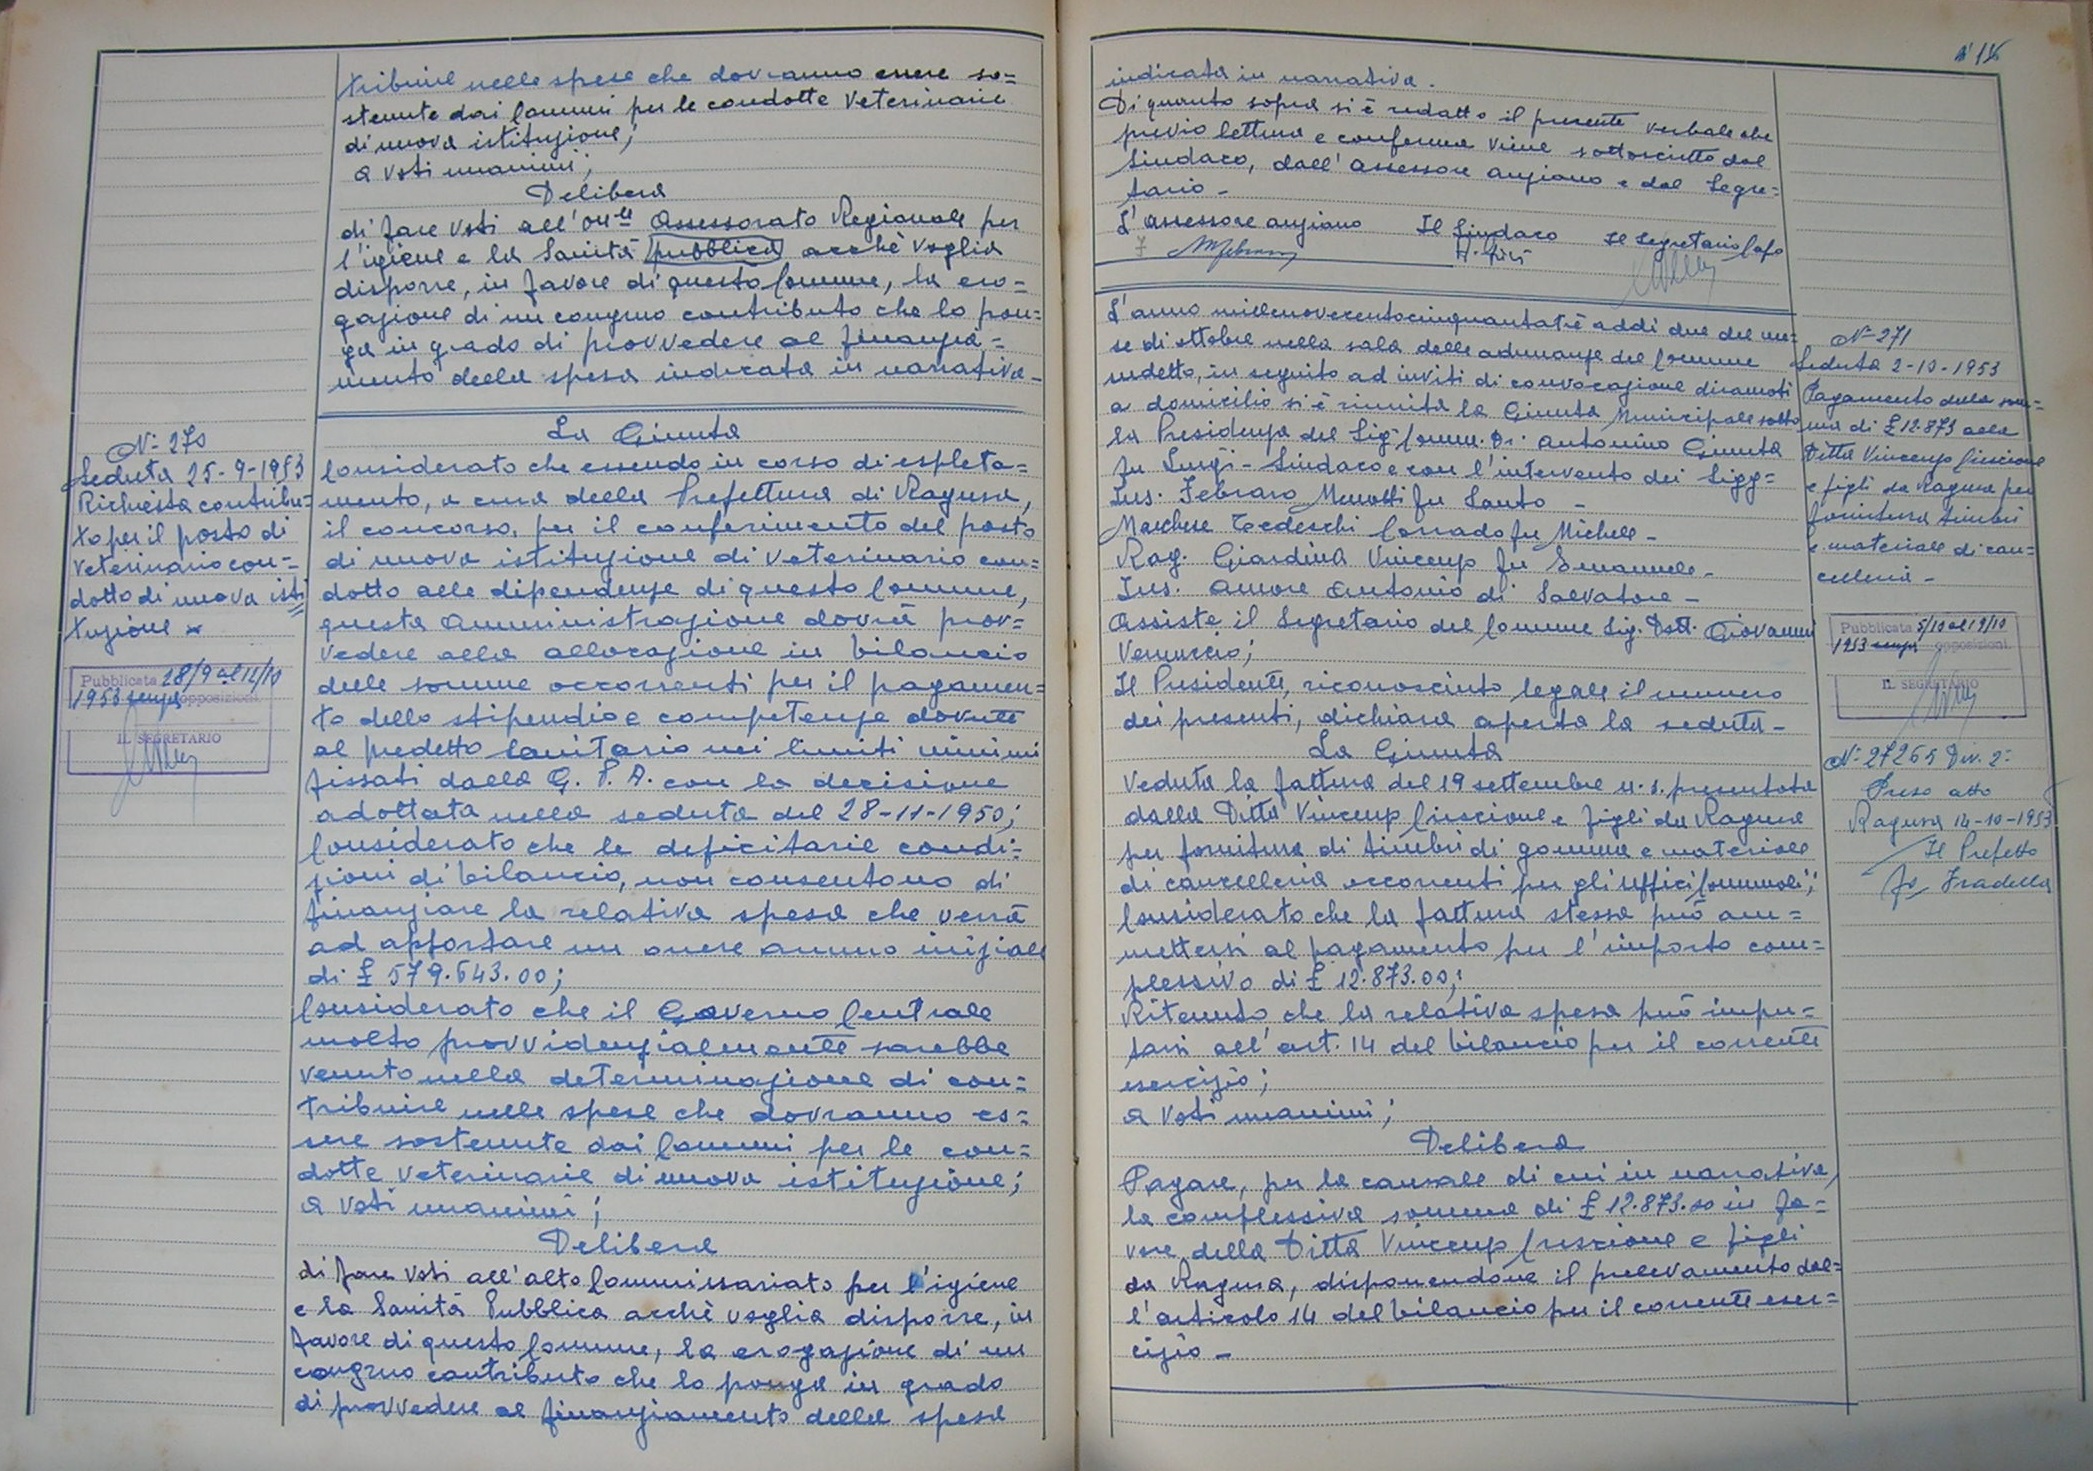 tribuire nelle spese che dovranno essere so=
stenute dai Comuni per le condotte Veterinarie
di nuova istituzione;
a voti unanimi;
Delibera
di fare voti all'On.le Assessorato Regionale per
l'igiene e la Sanità pubblica acchè voglia
disporre, in favore di questo Comune, la ero=
gazione di un congruo contributo che lo pon=
ga in grado di provvedere al finanzia=
mento della spesa indicata in narrativa-
N: 270
Seduta 25-9-1953
Richiesta contribu=
to per il posto di
Veterinario con=
dotto di nuova isti
tuzione
Pubblicata 28/9 al 12/10
1953 senza opposizioni
IL SEGRETARIO
La Giunta
Considerato che essendo in corso di espleta=
mento, a cura della Prefettura di Ragusa,
il concorso, per il conferimento del posto
di nuova istituzione di Veterinario con=
dotto alle dipendenze di questo Comune,
questa Amministrazione dovrà prov=
vedere alla allocazione in bilancio
delle somme occorrenti per il pagamen=
to dello stipendio e competenze dovute
al predetto Sanitario nei limiti minimi
fissati dalla G. P. A. con la decisione
adottata nella seduta del 28-11-1950;
Considerato che le deficitarie condi=
zioni di bilancio, non consentono di
finanziare la relativa spesa che verrà
ad apportare un onere annuo iniziale
di £ 579.643.00;
Considerato che il Governo Centrale
molto provvidenzialmente sarebbe
venuto nella determinazione di con=
tribuire nelle spese che dovranno es=
sere sostenute dai Comuni per le con=
dotte veterinarie di nuova istituzione;
a voti unanimi;
Delibera
di fare voti all'alto Commissariato per l'igiene
e la Sanità Pubblica acchè voglia disporre, in
favore di questo Comune, la erogazione di un
congruo contributo che lo ponga in grado
di provvedere al finanziamento della spesa
indicata in narrativa.
Di quanto sopra si è redatto il presente verbale che
previo lettura e conferma viene sottoscritto dal
Sindaco, dall'Assessore anziano e dal Segre=
tario-
L'Assessore anziano Il Sindaco Il Segretario Capo
L'anno millenovecentocinquantatrè addì due del me=
se di ottobre nella sala delle adunanze del Comune
sudetto, in seguito ad inviti di convocazione diramati
a domicilio si è riunita la Giunta Municipale sotto
la Presidenza del Sig. Comm. Dr. Antonino Giunta
fu Luigi- Sindaco e con l'intervento dei Sigg=
Ins. Febraro Menotti fu Santo -
Marchese Tedeschi Corrado fu Michele-
Rag. Giardina Vincenzo fu Emanuele-
Ins. Amore Antonio di Salvatore-
Assiste il Segretario del Comune Sig. Dott. Giovanni
Il Presidente, riconosciuto legale il numero
dei presenti, dichiara aperta la seduta-
La Giunta
Veduta la fattura del 19 settembre u. s. presentata
dalla Ditta Vincenzo Criscione e figli da Ragusa
per fornitura di timbri di gomma e materiale
di cancelleria occorrenti per gli uffici Comunali;
Considerato che la fattura stessa può am=
mettersi al pagamento per l'importo com=
plessivo di £ 12.873.00;
Ritenuto che la relativa spesa può impu=
tarsi all'art. 14 del bilancio per il corrente
esercizio;
a voti unanimi;
Delibera
Pagare, per la causale di cui in narrativa,
la complessiva somma di £ 12.873.00 in fa=
vore della Ditta Vincenzo Criscione e figli
da Ragusa, disponendone il prelevamento dal=
l'articolo 14 del bilancio per il corrente eser=
cizio-
N- 271
Seduta 2-10-1953
Pagamento della som=
ma di £ 12.873 alla
Ditta Vincenzo Criscione
e figli da Ragusa per
fornitura timbri
e materiale di can=
celleria-
Pubblicata 5/10 al 19/10
1953 senza opposizioni
IL SEGRETARIO
N: 27265 Div. 2:
Preso atto
Ragusa 14-10-1953
Il Prefetto